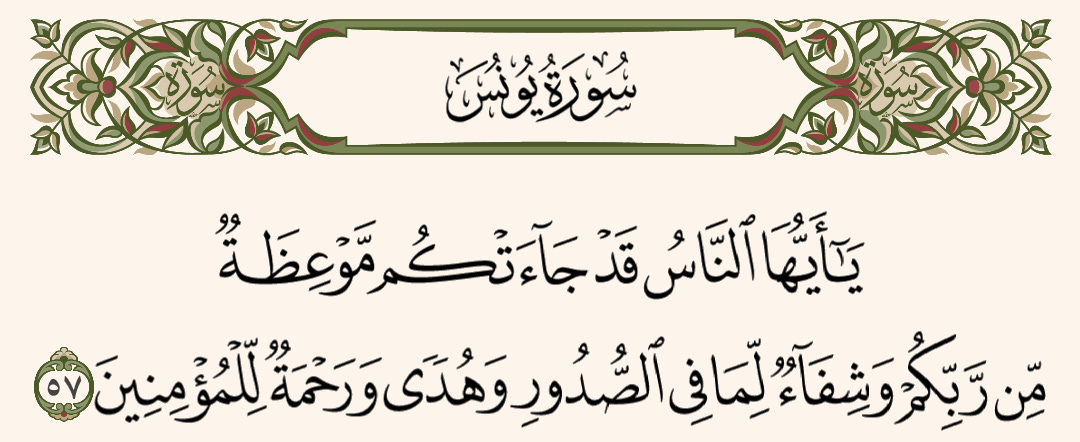 سُورَةُ يُونُسَ
سُورَةُ
سُورَةُ
يَٰٓأَيُّهَا ٱلنَّاسُ قَدْ جَآءَتْكُم مَّوْعِظَةٌ
مِّن رَّبِّكُمْ وَشِفَآءٌ لِّمَا فِى ٱلصُّدُورِ وَهُدًى وَرَحْمَةٌ لِّلْمُؤْمِنِينَ ٥٧